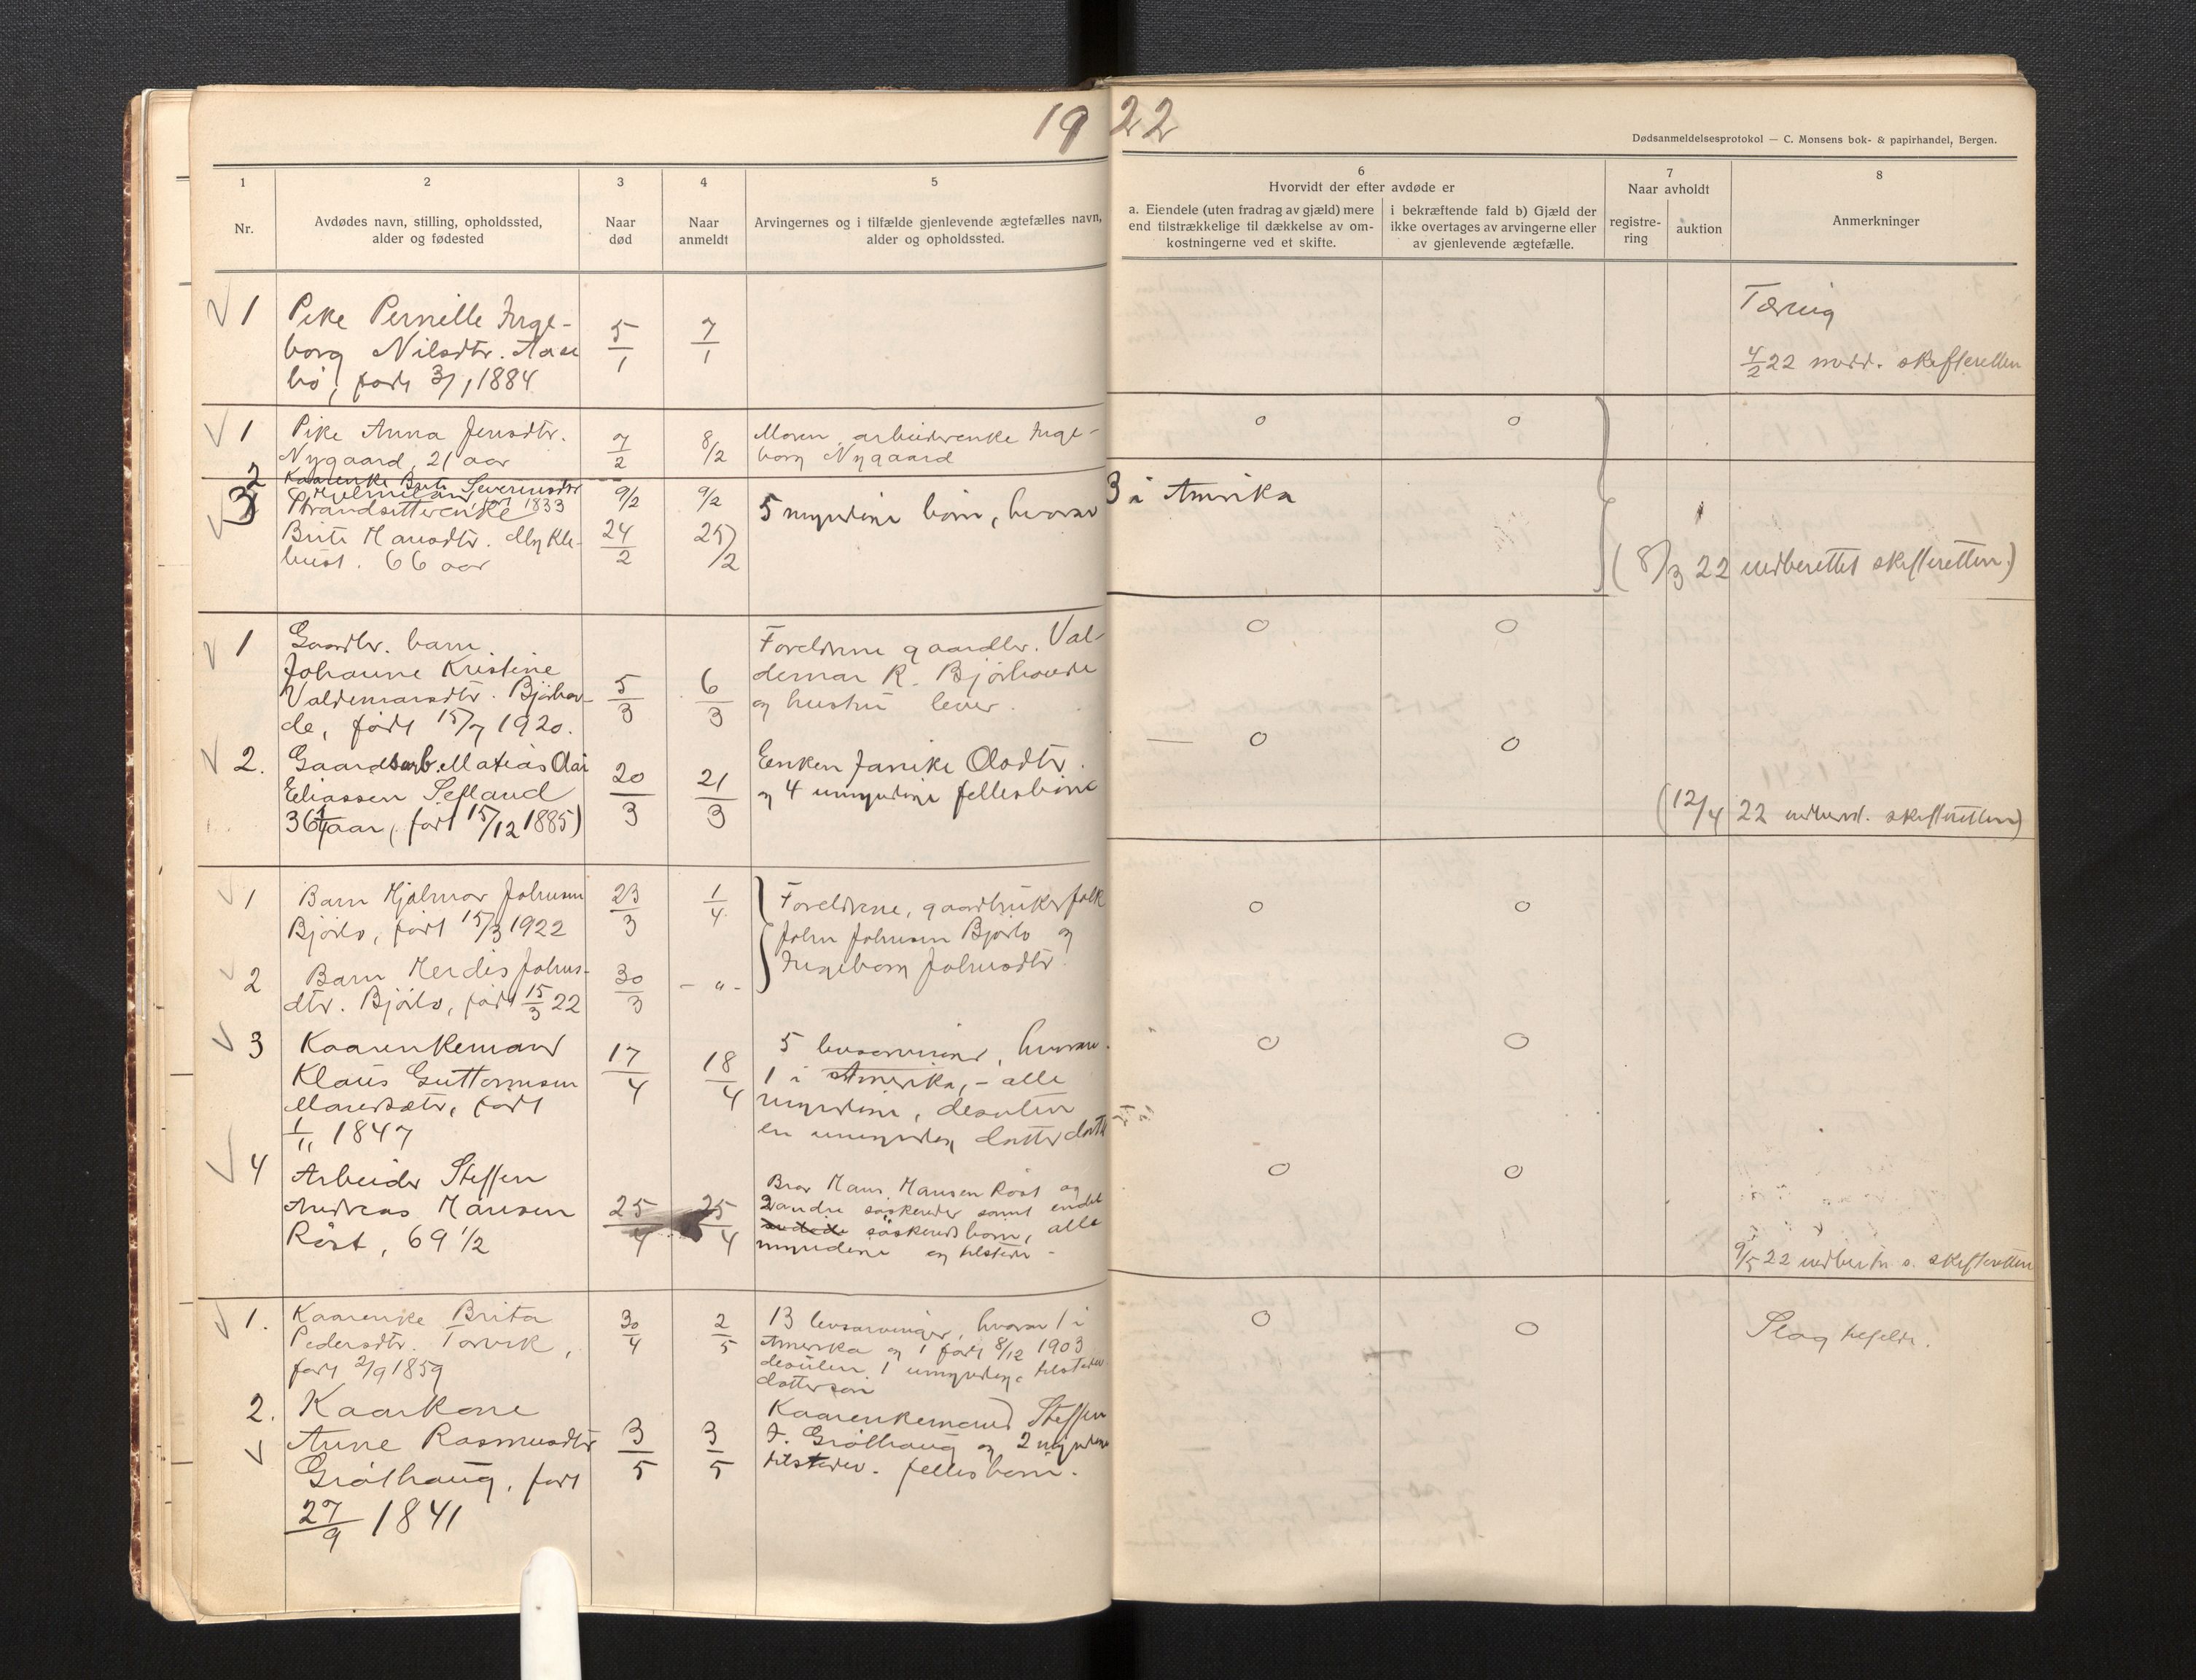 1922
Dødsanmeldelsesprotokol — C. Monsens bok- & papirhandel, Bergen.
1
2
3
4
5
6
7
8
Nr.
Avdødes navn, stilling, opholdssted,
alder og fødested
Naar
død
Naar
anmeldt
Arvingernes og i tilfælde gjenlevende ægtefælles navn,
alder og opholdssted.
Hvorvidt der efter avdøde er
a. Eiendele (uten fradrag av gjæld) mere
end tilstrækkelige til dækkelse av om-
kostningerne ved et skifte.
i bekræftende fald b) Gjæld der
ikke overtages av arvingerne eller
av gjenlevende ægtefælle.
Naar avholdt
registre-
ring
auktion
Anmerkninger
1 Pike Pernille Inge-
borg Nilsdtr. Aase
bö, födt 3/1 1884
5/1
7/1
Tæring
4/2 22 medd. skifteretten
1 Pike Anna Jensdtr.
Nygaard, 21 aar
7/2
8/2
Moren, arbeiderenke Inge-
borg Nygaard
0 0
2 Kaarenke Brite Severinsdtr
1833
9/2
9/2
5 myndige börn, hvorav 3 i Amerika
3 Strandsitterenke
Brite Hansdtr. Mykle-
bust. 66 aar
24/2
25/2
(8/3 22 indberettet skifteretten.)
1 Gaardbr. barn
Johanne Kristine
Valdemarsdtr. Björhov-
de, födt 15/7 1920.
5/3
6/3
Foreldrene gaardbr. Val-
demar R. Björhovde
og hustru lever.
0 0
2. Gaardbarb. Matias
Eliassen Sefland
36 aar, (födt 15/12 1885)
20/3
21/3
Enken Janike Olsdtr.
og 4 umyndige fellesbörn
— 0 0
(12/4 22 indberet. skifteretten)
1 Barn Hjalmar Johnsen
Björlo, födt 15/3 1922
23/3
1/4
Foreldrene, gaardbrukerfolk
John Johnsen Björlo og
Ingeborg Johnsdtr.
0 0
2 Barn Herdis Johns-
dtr. Björlo, födt 15/3 22
30/3
- " -
3 Kaarenkemand
Klaus Guttormsen
födt
1/11 1847
17/4
18/4
5 livsarvinger, hvorav
1 i Amerika, - alle
myndige, desuten
en umyndig datterdatter
0 0
4 Arbeider Steffen
Andreas Hansen
Röst, 69 1/2
25/4
25/4
Bror Hans Hansen Röst og
2 andre söskender samt endel
söskendebörn, alle
myndige og tilstede -
0 0
9/5 22 indberetn. s. skifteretten
1. Kaarenke Brita
Pedersdtr. Torvik,
födt 2/9 1859
30/4
2/5
13 livsarvinger, hvorav 1 i
Amerika og 1 födt 8/12 1903
desuten 1 umyndig tilstedev.
dattersön
0 0
Slag tilfelde.
2. Kaarkone
Anne Rasmusdtr
Gröthaug, födt
27/9 1841
3/5
3/5
Kaarenkemand Steffen
J. Gröthaug og 2 myndige
tilstedev. fellesbörn.